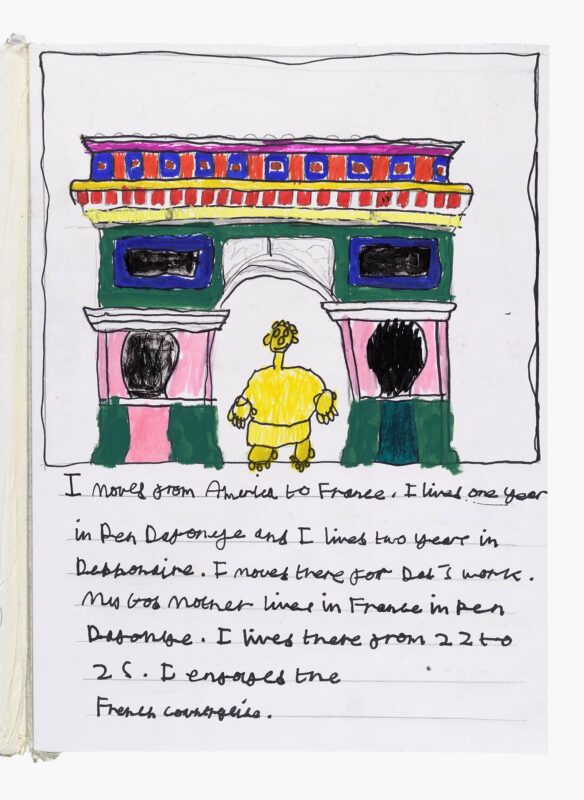 I moved from America to France. I lived one year
in Pen and I lived two year in
I moved there for Dad's work.
My God Mother lives in France in Pen
I lived there from 22 to
25. I enjoyed the
French countryside.